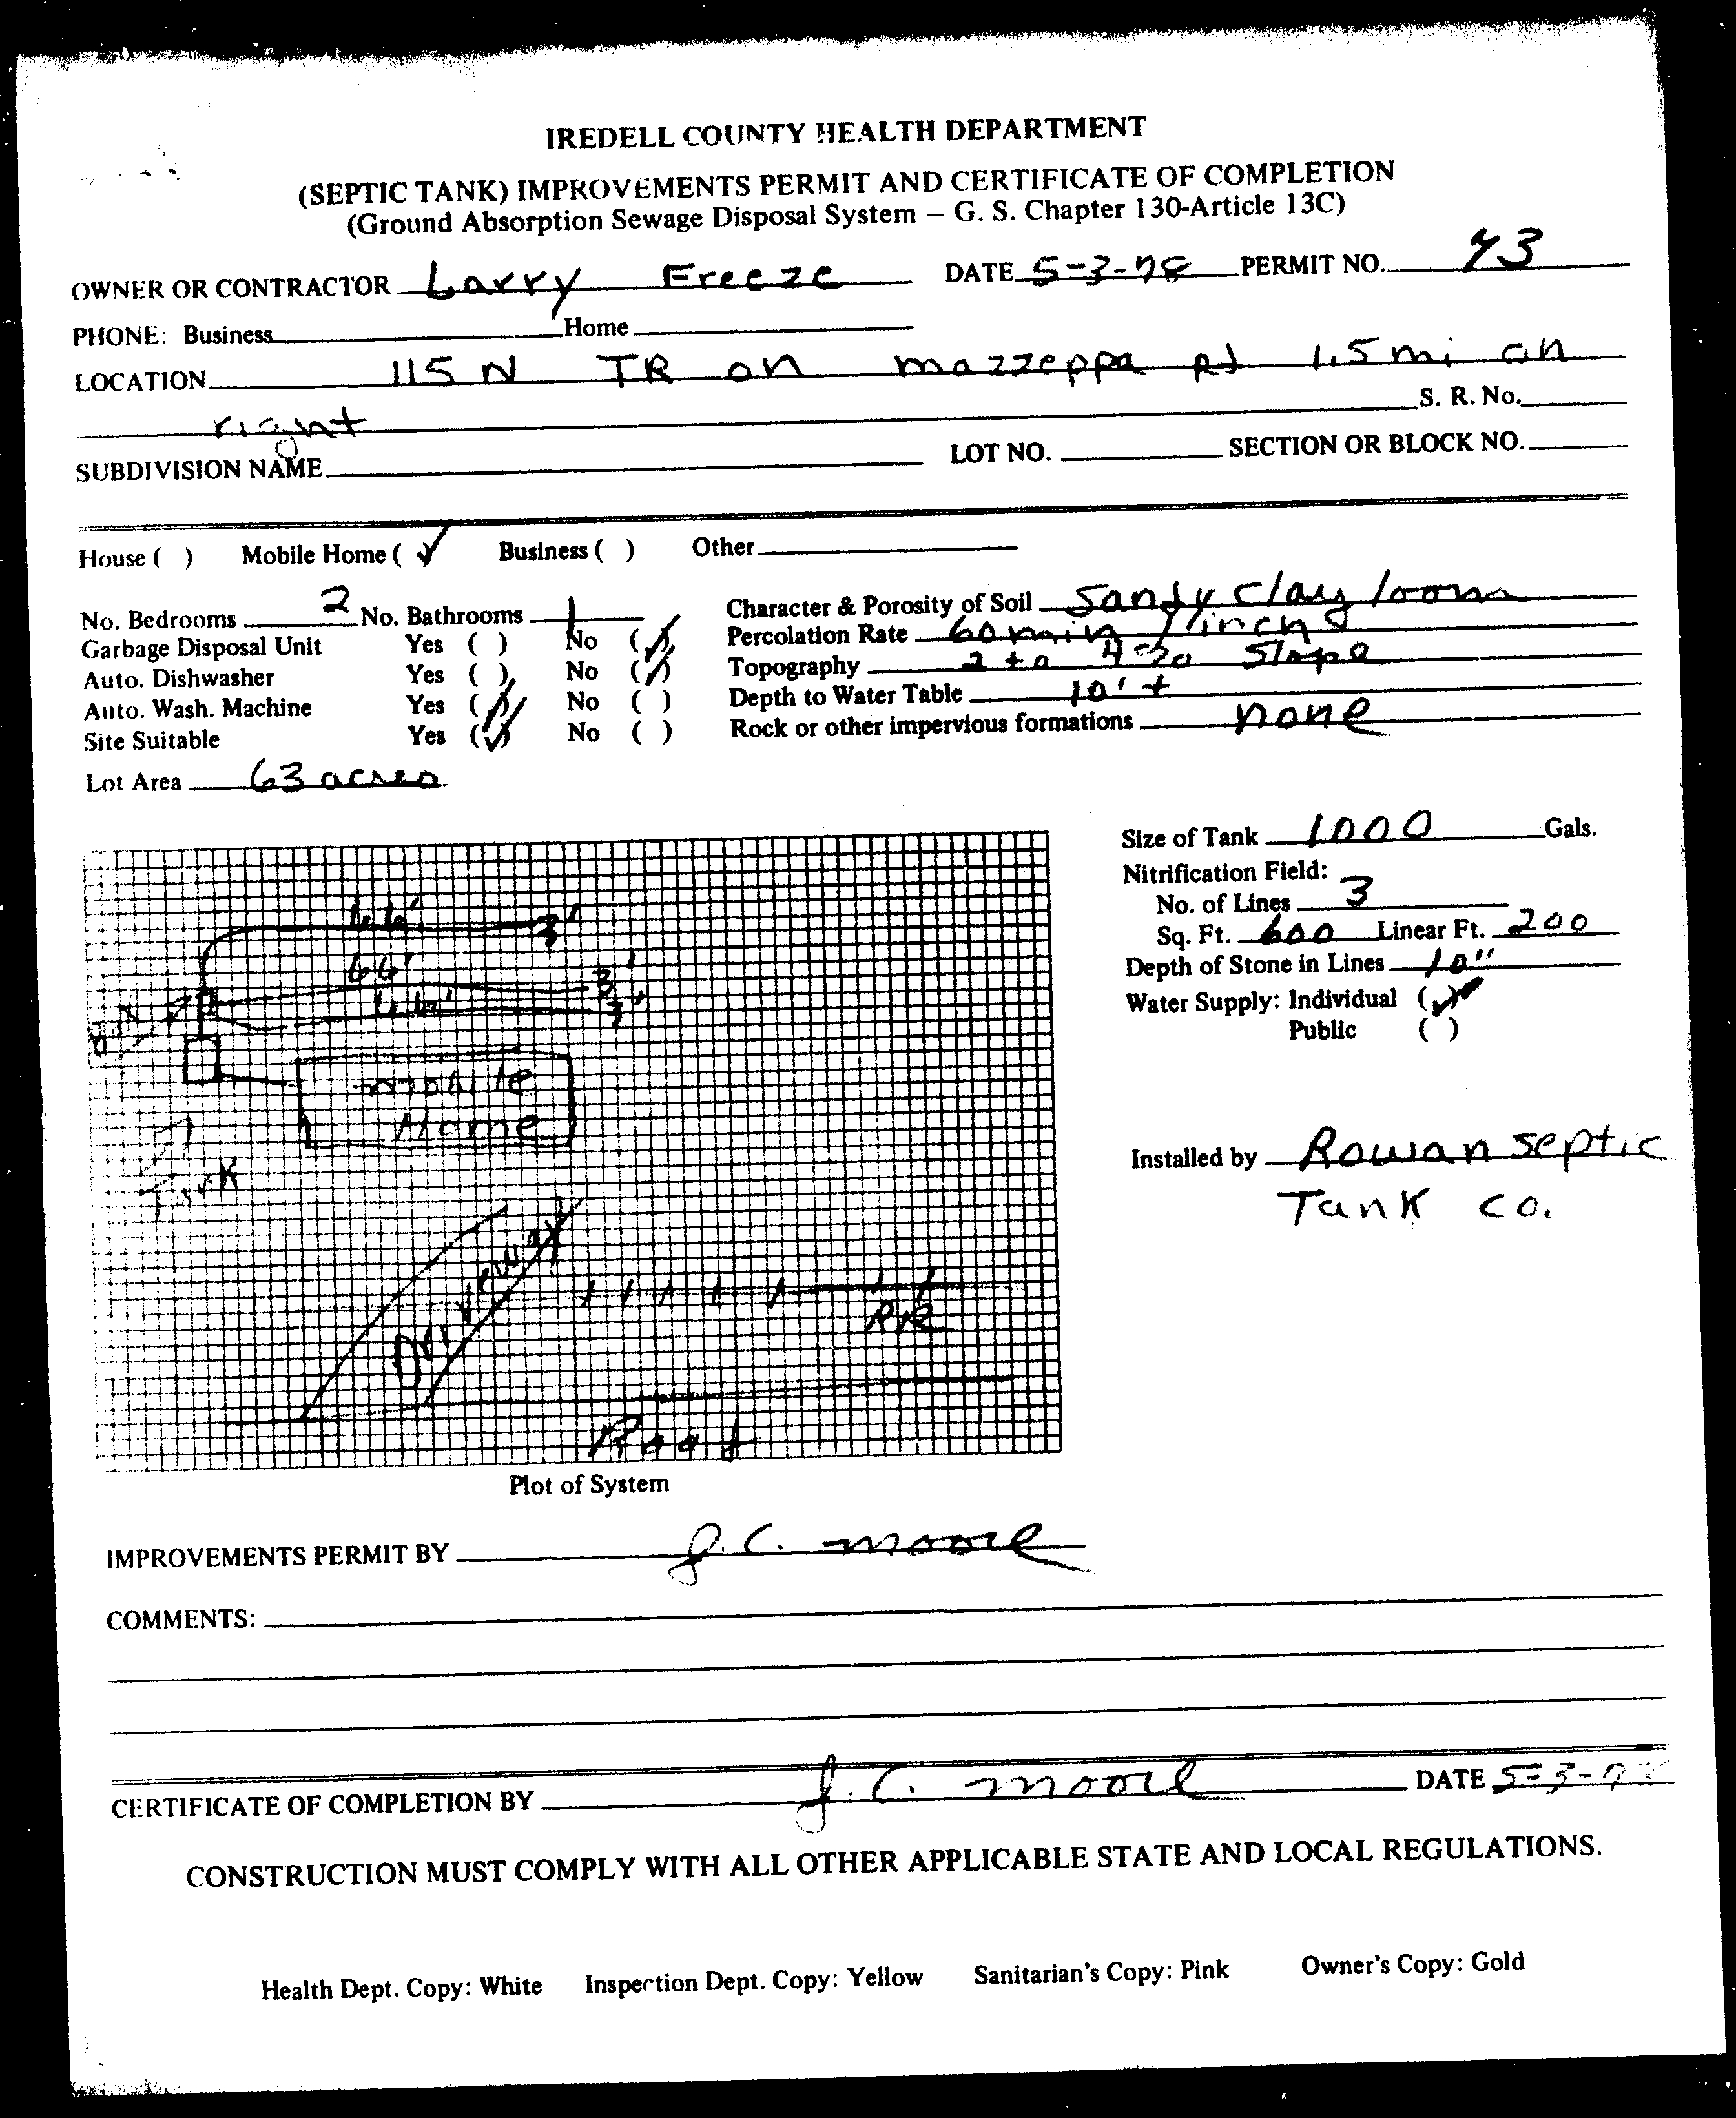 IREDELL COUNTY HEALTH DEPARTMENT
(SEPTIC TANK) IMPROVEMENTS PERMIT AND CERTIFICATE OF COMPLETION
(Ground Absorption Sewage Disposal System – G. S. Chapter 130-Article 13C)
OWNER OR CONTRACTOR Larry Freeze DATE 5-3-78 PERMIT NO. 73
PHONE: Business Home
LOCATION 115 N TR on mazzeppa rd 1.5 mi on
right S. R. No.
SUBDIVISION NAME LOT NO. SECTION OR BLOCK NO.
House ( ) Mobile Home (✓) Business ( ) Other
No. Bedrooms 2 No. Bathrooms 1 Character & Porosity of Soil Sandy clay loam
Garbage Disposal Unit Yes ( ) No (✓) Percolation Rate 60 min / inch
Auto. Dishwasher Yes ( ) No (✓) Topography 2 to 4% Slope
Auto. Wash. Machine Yes (✓) No ( ) Depth to Water Table 10' +
Site Suitable Yes (✓) No ( ) Rock or other impervious formations none
Lot Area 63 acres
Size of Tank 1000 Gals.
Nitrification Field:
No. of Lines 3
Sq. Ft. 600 Linear Ft. 200
Depth of Stone in Lines 10"
Water Supply: Individual (✓)
Public ( )
Installed by Rowan septic
Tank co.
66' 3'
66' 3'
66' 3'
Box
mobile
Home
Tank
Driveway
RR
Road
Plot of System
IMPROVEMENTS PERMIT BY J. C. Moore
COMMENTS:
CERTIFICATE OF COMPLETION BY J. C. Moore DATE 5-3-78
CONSTRUCTION MUST COMPLY WITH ALL OTHER APPLICABLE STATE AND LOCAL REGULATIONS.
Health Dept. Copy: White Inspection Dept. Copy: Yellow Sanitarian's Copy: Pink Owner's Copy: Gold